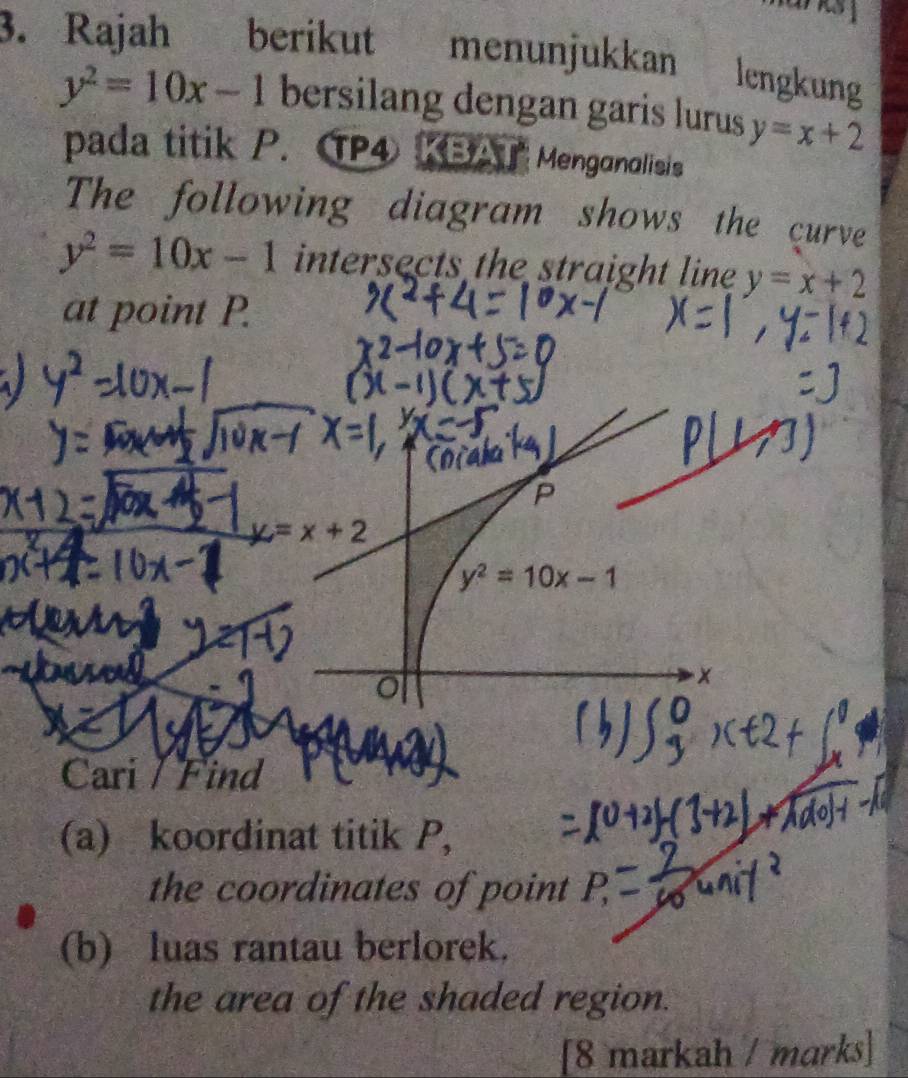 3. Rajah berikut menunjukkan lengkung
y² = 10x – 1 bersilang dengan garis lurus y = x + 2
pada titik P. TP4 KBAT Menganalisis
The following diagram shows the curve
y² = 10x – 1 intersects the straight line y = x + 2
at point P.
x²+4=10x-1
x=1, y=1+2
x2-10x+5=0
=3
y²=10x-1
(x-1)(x+5)
y= √10x-1
x=1, x=-5
P(1,3)
y
P
x+2=
y = x + 2
x²+4=10x-1
y² = 10x – 1
y=1+2
x
O
(b) ∫ x+2+ ∫
Cari / Find
(a) koordinat titik P,
=(0+2)-(3+2)+
the coordinates of point P,
unit²
(b) luas rantau berlorek.
the area of the shaded region.
[8 markah / marks]